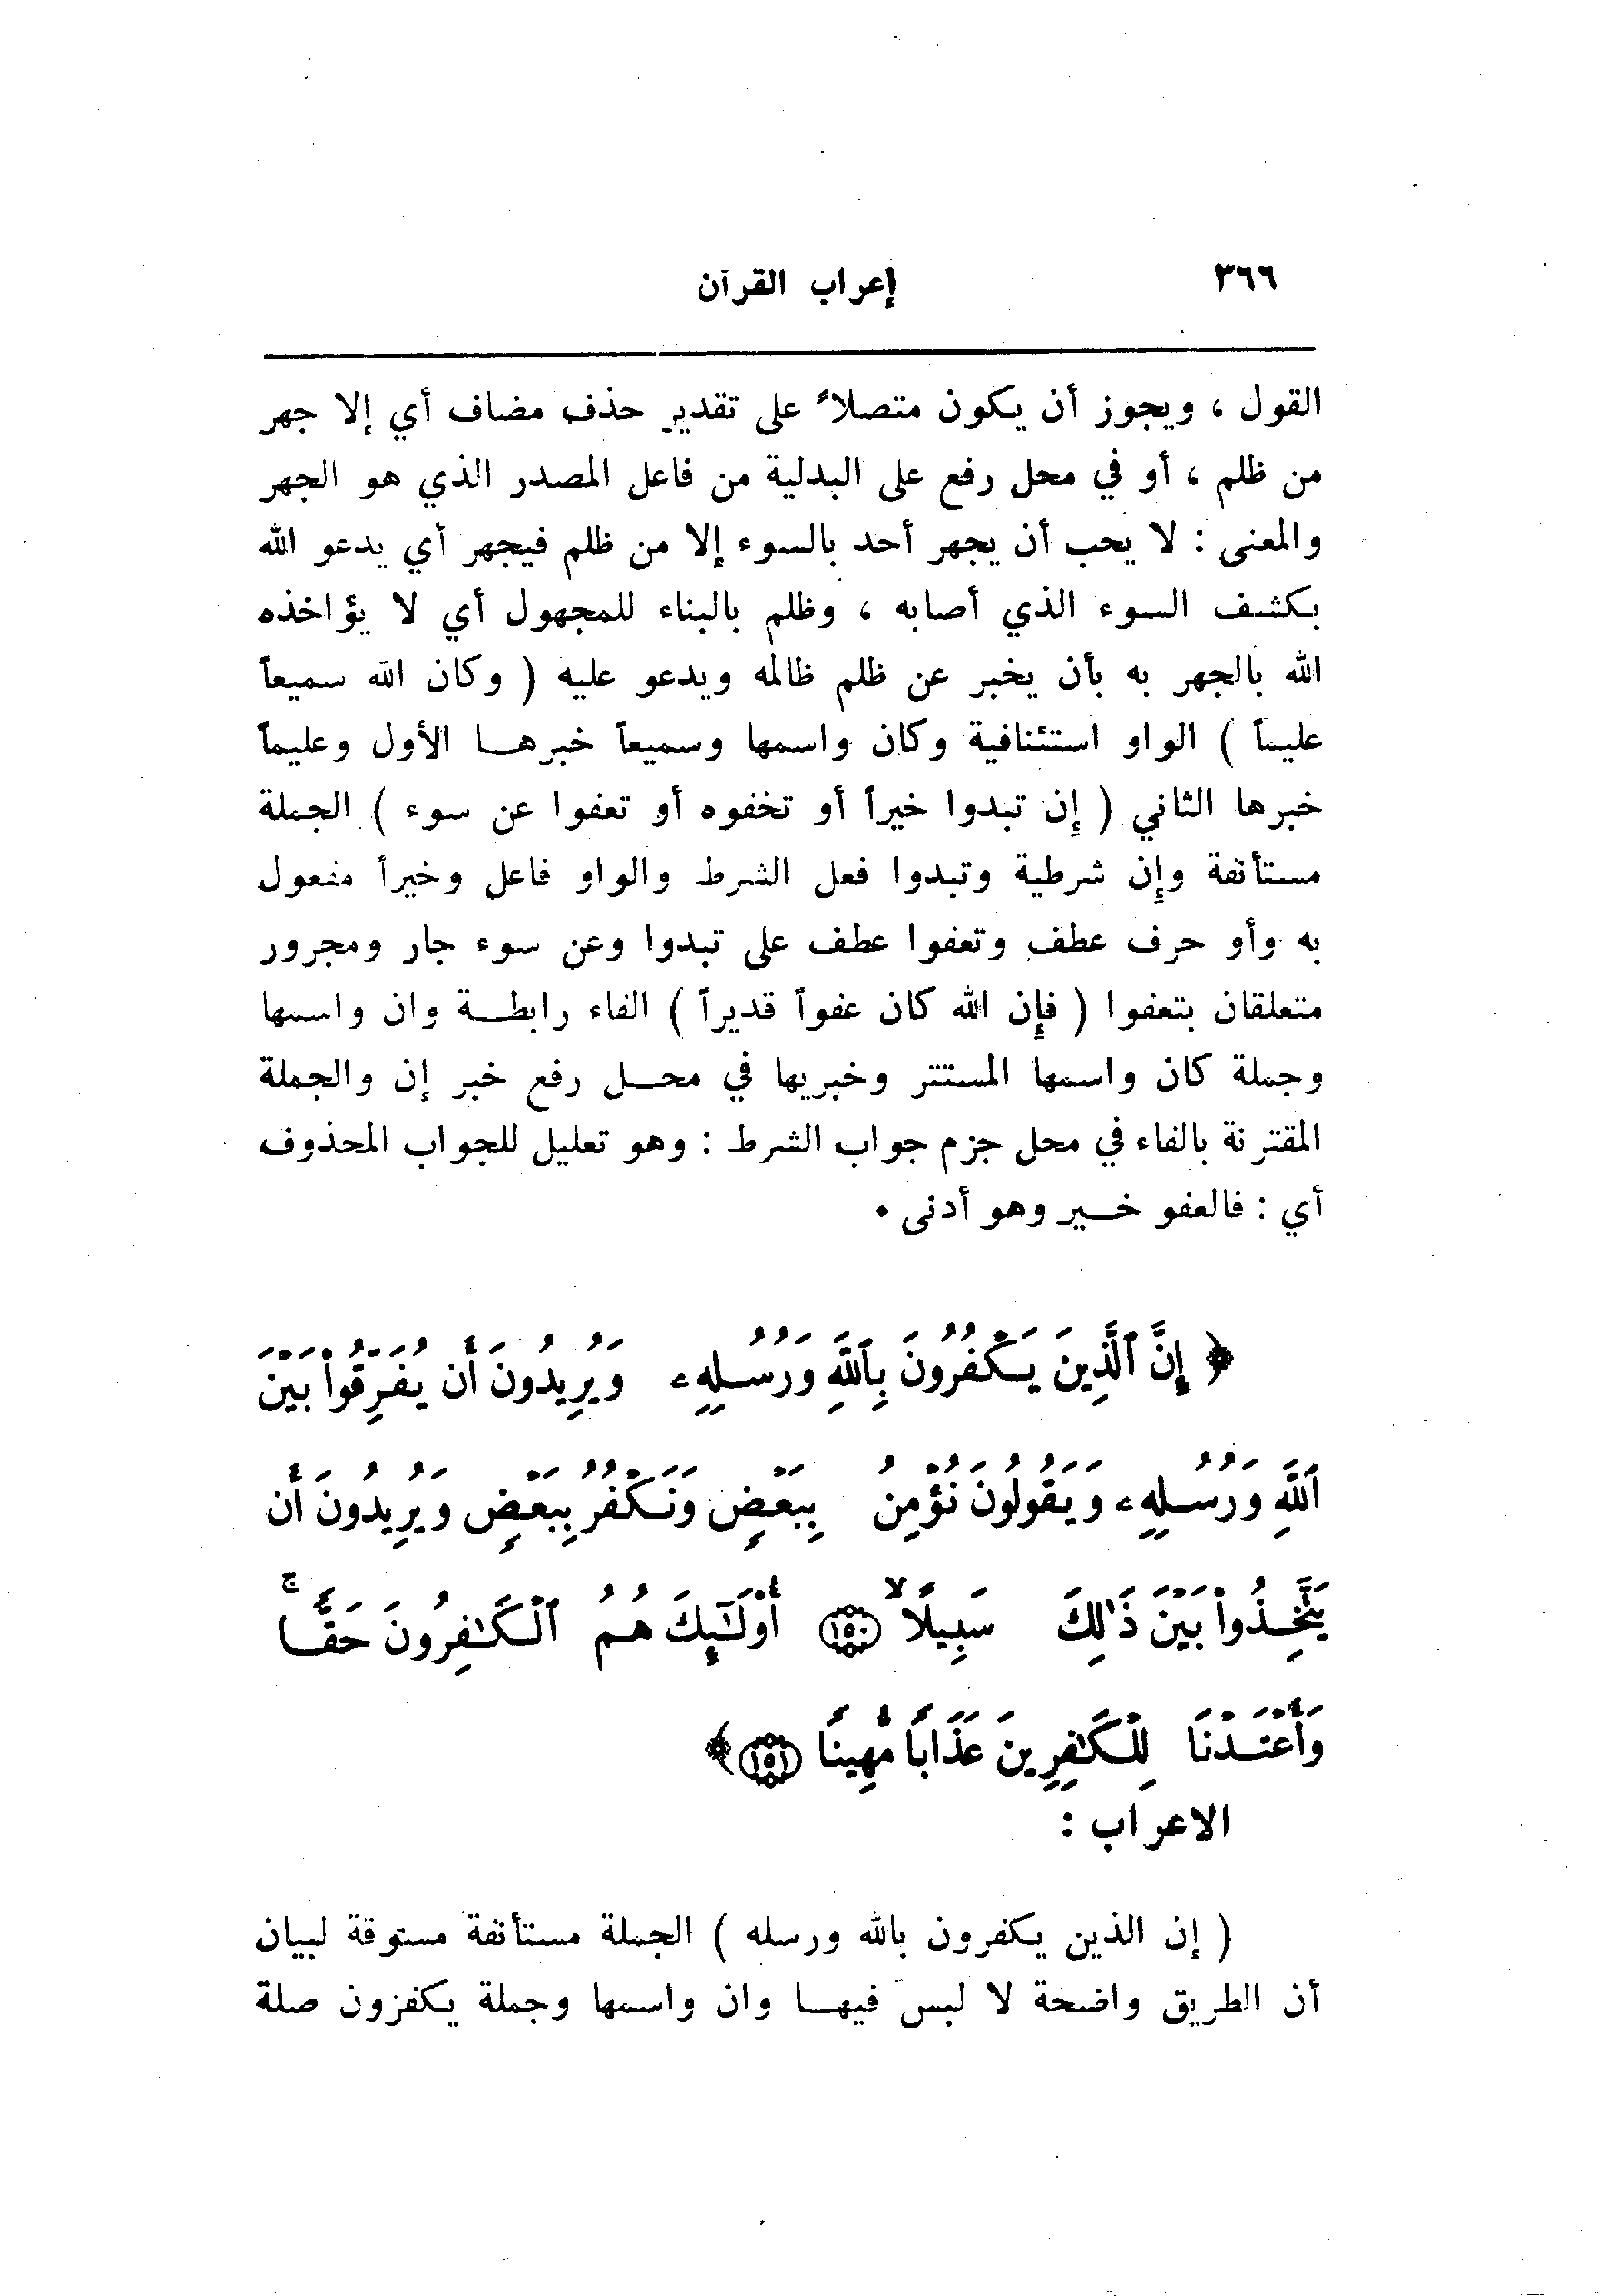 ٣٦٦ إعراب القرآن
القول ، ويجوز أن يكون متصلاً على تقدير حذف مضاف أي إلا جهر
من ظلم ، أو في محل رفع على البدلية من فاعل المصدر الذي هو الجهر
والمعنى : لا يحب أن يجهر أحد بالسوء إلا من ظلم فيجهر أي يدعو الله
بكشف السوء الذي أصابه ، وظلم بالبناء للمجهول أي لا يؤاخذه
الله بالجهر به بأن يخبر عن ظلم ظالمه ويدعو عليه ( وكان الله سميعاً
عليماً ) الواو استئنافية وكان واسمها وسميعاً خبرها الأول وعليماً
خبرها الثاني ( إن تبدوا خيراً أو تخفوه أو تعفوا عن سوء ) الجملة
مستأنفة وإن شرطية وتبدوا فعل الشرط والواو فاعل وخيراً مفعول
به وأو حرف عطف وتعفوا عطف على تبدوا وعن سوء جار ومجرور
متعلقان بتعفوا ( فإن الله كان عفواً قديراً ) الفاء رابطة وان واسمها
وجملة كان واسمها المستتر وخبريها في محل رفع خبر إن والجملة
المقترنة بالفاء في محل جزم جواب الشرط : وهو تعليل للجواب المحذوف
أي : فالعفو خير وهو أدنى .
﴿ إِنَّ ٱلَّذِينَ يَكْفُرُونَ بِٱللَّهِ وَرُسُلِهِۦ وَيُرِيدُونَ أَن يُفَرِّقُوا۟ بَيْنَ
ٱللَّهِ وَرُسُلِهِۦ وَيَقُولُونَ نُؤْمِنُ بِبَعْضٍ وَنَكْفُرُ بِبَعْضٍ وَيُرِيدُونَ أَن
يَتَّخِذُوا۟ بَيْنَ ذَٰلِكَ سَبِيلًا ۙ ١٥٠ أُو۟لَٰٓئِكَ هُمُ ٱلْكَٰفِرُونَ حَقًّا ۚ
وَأَعْتَدْنَا لِلْكَٰفِرِينَ عَذَابًا مُّهِينًا ١٥١ ﴾
الاعراب :
( إن الذين يكفرون بالله ورسله ) الجملة مستأنفة مستوقة لبيان
أن الطريق واضحة لا لبس فيها وان واسمها وجملة يكفرون صلة